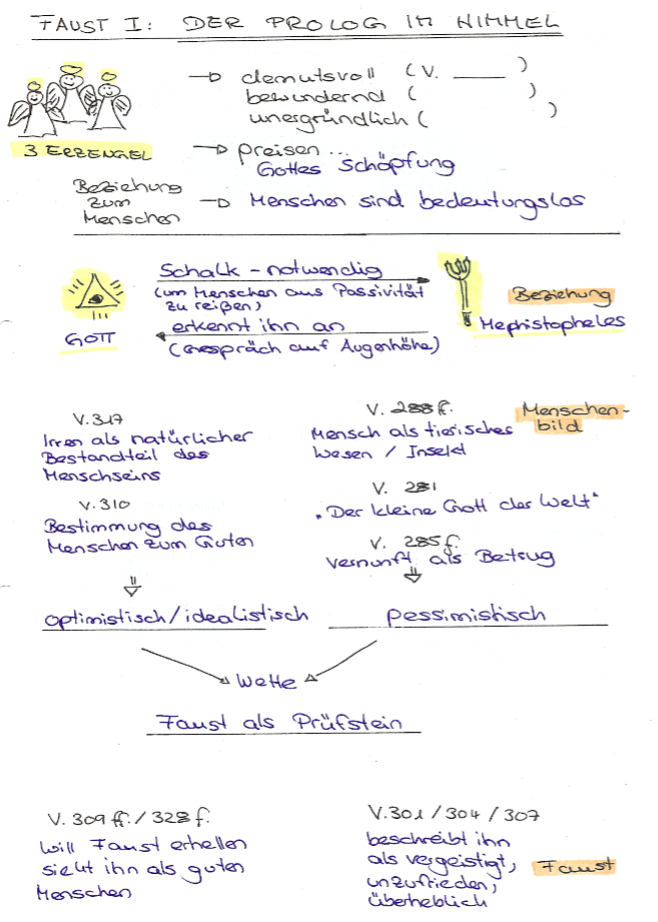 FAUST I: DER PROLOG IM HIMMEL
→ demutsvoll (V. ____ )
bewundernd ( )
unergründlich ( )
3 ERZENGEL
→ preisen ...
Gottes Schöpfung
Beziehung
zum
Menschen
→ Menschen sind bedeutungslos
Schalk - notwendig
(um Menschen aus Passivität
zu reißen)
erkennt ihn an
(Gespräch auf Augenhöhe)
GOTT
Beziehung
Mephistopheles
V. 317
Irren als natürlicher
Bestandteil des
Menschseins
V. 310
Bestimmung des
Menschen zum Guten
optimistisch/idealistisch
V. 288 ff.
Mensch als tierisches
Wesen / Insekt
V. 281
"Der kleine Gott der Welt"
V. 285 f.
Vernunft als Betrug
pessimistisch
Menschen-
bild
Wette
Faust als Prüfstein
V. 309 ff. / 328 f.
will Faust erhellen
sieht ihn als guten
Menschen
V. 301 / 304 / 307
beschreibt ihn
als vergeistigt,
unzufrieden,
überheblich
Faust